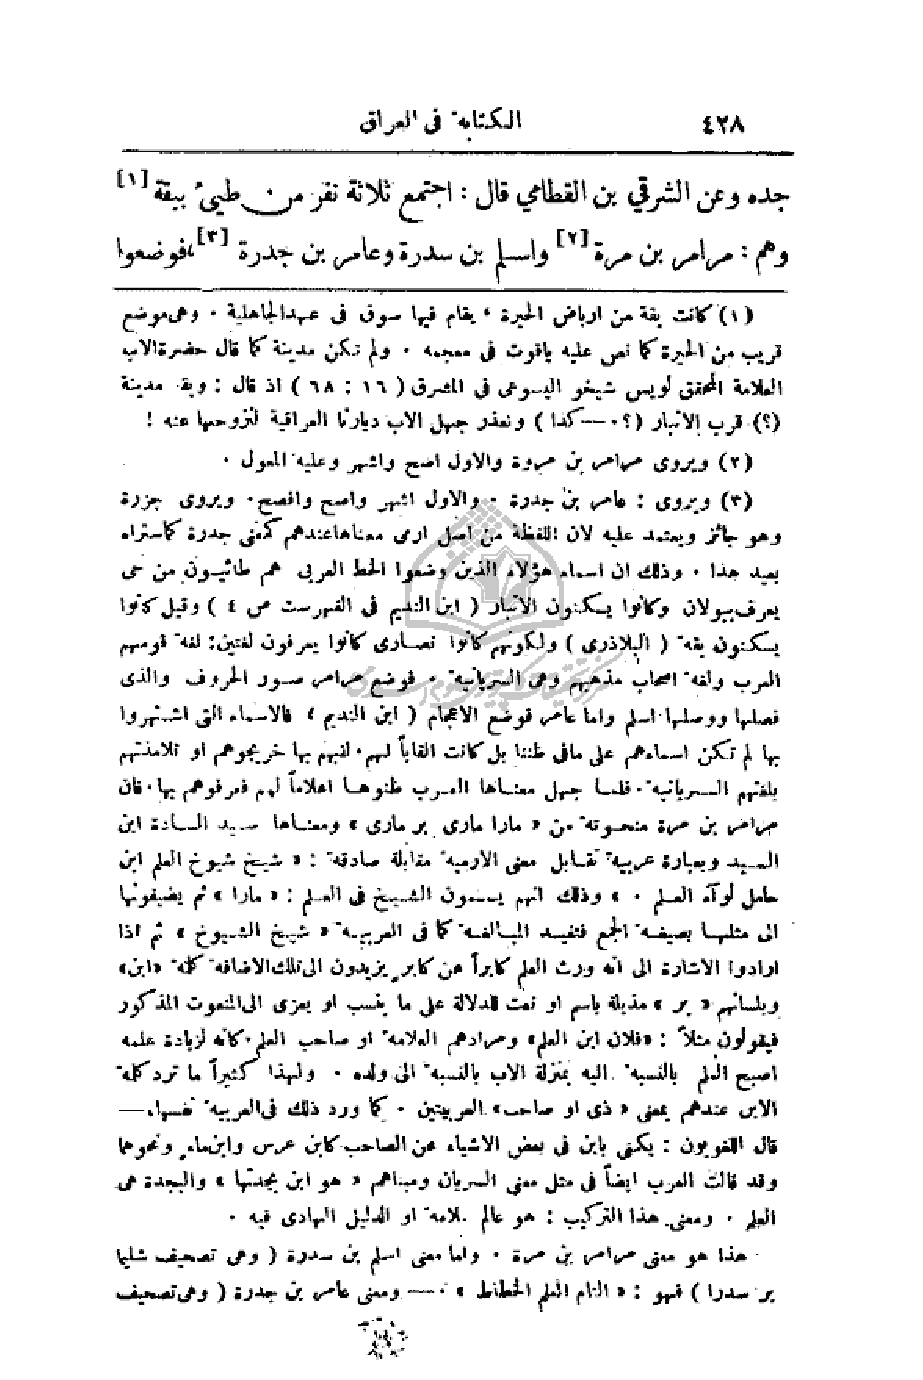 ٤٢٨ الكتابة فى العراق
جده وعن الشرقي بن القطامي قال : اجتمع ثلاثة نفر من طيىء ببقة [١]
وهم : مرامر بن مرة [٢] واسلم بن سدرة وعامر بن جدرة [٣] ،فوضعوا
(١) كانت بقة من ارباض الحيرة ، يقام فيها سوق فى عهد الجاهلية ٠ وهى موضع
قريب من الحيرة كما نص عليه ياقوت فى معجمه ٠ ولم تكن مدينة كما قال حضرة الاب
العلامة المحقق لويس شيخو اليسوعى فى المشرق ( ١٦ : ٦٨ ) اذ قال : وبقة مدينة
(؟) قرب الانبار (؟٠ — كذا ) ونعذر جهل الاب ديارنا العراقية لنزوحها عنه !
(٢) ويروى مرامر بن مروة والاول اصح واشهر وعليه المعول ٠
(٣) ويروى : عامر بن جدرة ٠ والاول اشهر واصح وافصح٠ ويروى جزرة
وهو جائز ويعتمد عليه لان اللفظة من اصل ارمى معناها عندهم كمعنى جدرة كما ستراه
بعيد هذا ٠ وذلك ان اسماء هؤلاء الذين وضعوا الخط العربى هم طائيون من حى
يعرف ببولان وكانوا يسكنون الانبار ( ابن النديم فى الفهرست ص ٤ ) وقيل كانوا
يسكنون بقة ( البلاذرى ) ولكونهم كانوا نصارى كانوا يعرفون لغتين: لغة قومهم
العرب ولغة اصحاب مذهبهم وهى السريانية ٠ فوضع مرامر صور الحروف والذى
فصلها ووصلها اسلم واما عامر فوضع الاعجام ( ابن النديم ) فالاسماء التى اشتهروا
بها لم تكن اسماءهم على مافى ظننا بل كانت القاباً لهم٠ لقبهم بها خريجوهم او تلامذتهم
بلغتهم السريانية٠ فلما جهل معناها العرب ظنوها اعلاماً لهم فعرفوهم بها٠ فان
مرامر بن مرة منحوتة من « مارا مارى بر مارى » ومعناها سيد السادة ابن
السيد وبعبارة عربية تقابل معنى الارمية مقابلة صادقة : « شيخ شيوخ العلم ابن
حامل لوآء العلم ٠ » وذلك انهم يسمون الشيخ فى العلم : « مارا » ثم يضيفونها
الى مثلها بصيغة الجمع فتفيد المبالغة كما فى العربية « شيخ الشيوخ » ثم اذا
ارادوا الاشارة الى انه ورث العلم كابراً عن كابر يزيدون الى تلك الاضافة كلمة «ابن»
وبلسانهم « بر » مذيلة باسم او نعت للدلالة على ما ينسب او يعزى الى المنعوت المذكور
فيقولون مثلاً : «فلان ابن العلم» ومرادهم العلامة او صاحب العلم٠ كأنه لزيادة علمه
اصبح العلم بالنسبة اليه بمنزلة الاب بالنسبة الى ولده ٠ ولهذا كثيراً ما ترد كلمة
الابن عندهم بمعنى « ذى او صاحب» العربيتين ٠ كما ورد ذلك فى العربية نفسها٠—
قال اللغويون : يكنى بابن فى بعض الاشياء عن الصاحب كابن عرس وابن ماء ونحوهما
وقد قالت العرب ايضاً فى مثل معنى السريان ومبناهم « هو ابن بجدتها » والبجدة هى
العلم ٠ ومعنى هذا التركيب : هو عالم علامة او الدليل الهادى فيه ٠
هذا هو معنى مرامر بن مرة ٠ واما معنى اسلم بن سدرة ( وهى تصحيف شليما
بر سدرا ) فهو : « التام العلم الخطاط » ٠— ومعنى عامر بن جدرة ( وهى تصحيف